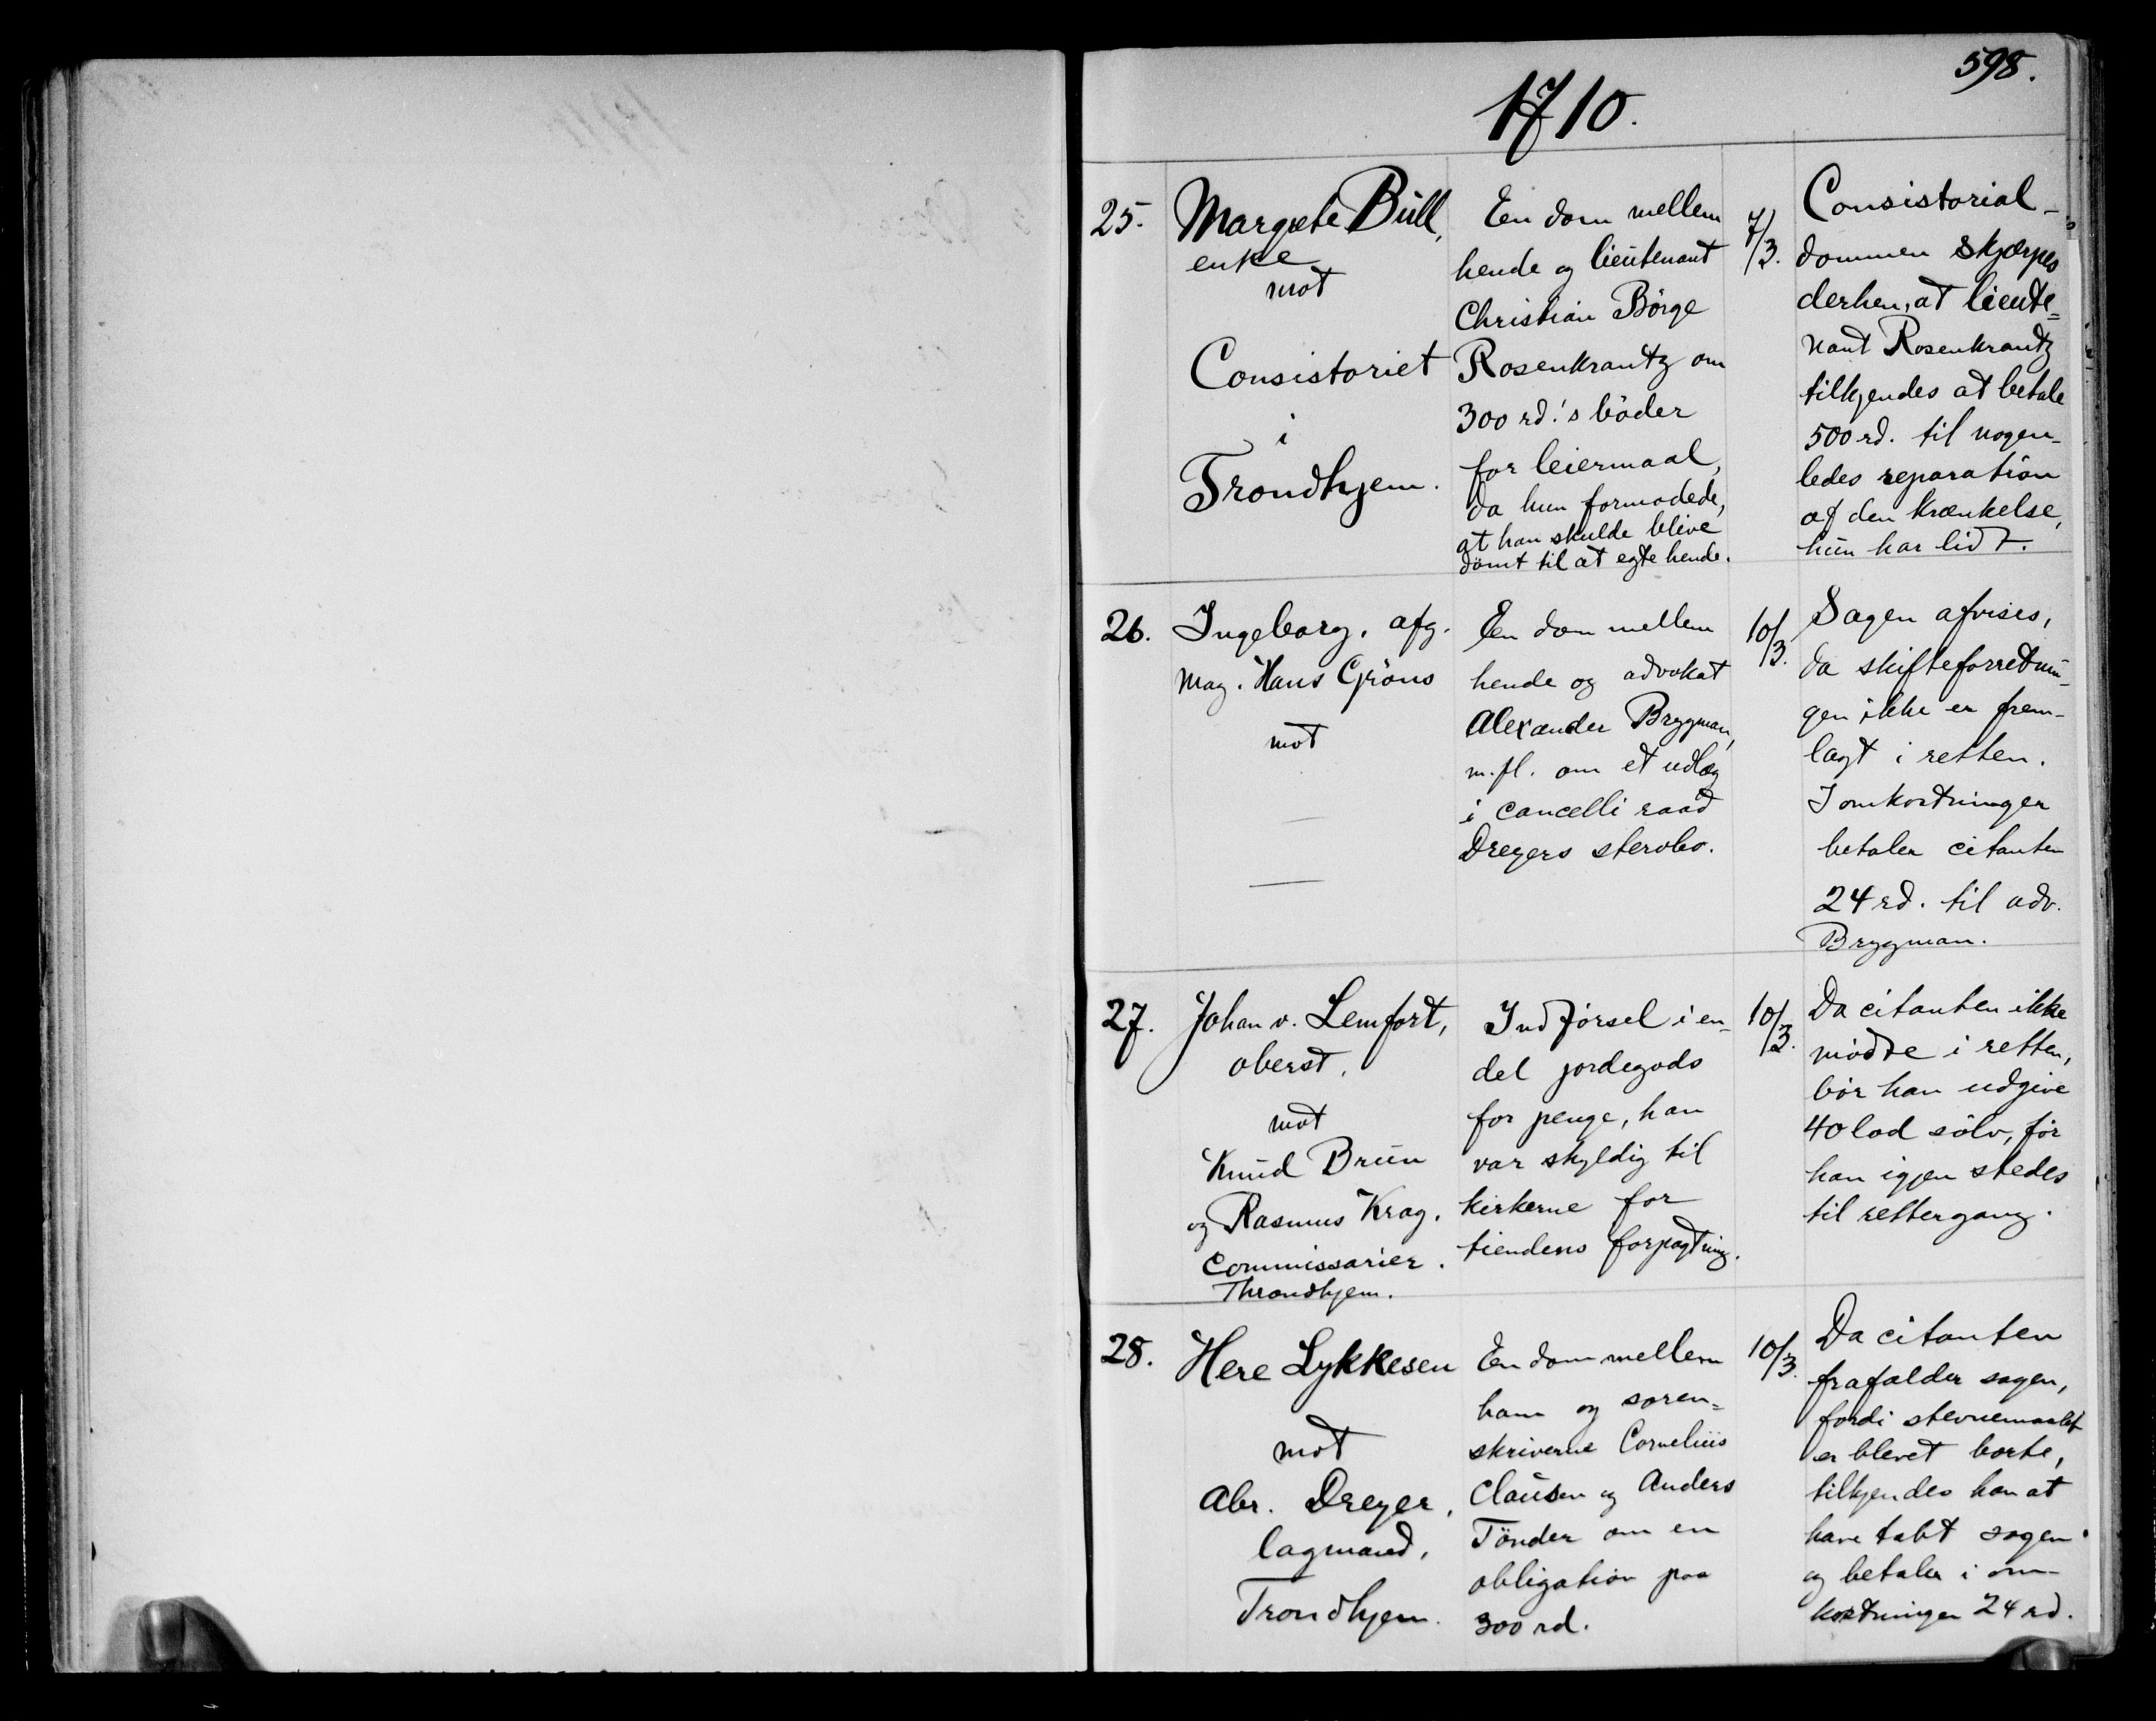 598.
1710.
25.
Margrete Bull,
enke
mot
Consistoriet
i
Trondhjem.
En dom mellem
hende og lieutenant
Christian Börge
Rosenkrantz om
300 rd.'s böder
for leiermaal,
da hun formodede,
at han skulde blive
dömt til at egte hende.
7/3.
Consistorial-
dommen skjærpes
derhen, at lieute=
nant Rosenkrantz
tilkjendes at betale
500 rd. til nogen-
ledes reparation
af den krænkelse,
hun har lidt.
26.
Ingeborg, afg.
Mag. Hans Gröns
mot
En dom mellem
hende og advokat
Alexander Brygman,
m.fl. om et udlæg
i cancelliraad
Dreyers stervbo.
10/3.
Sagen afvises,
da skifteforretnin-
gen ikke er frem-
lagt i retten.
I omkostninger
betaler citanten
24 rd. til adv.
Brygman.
27.
Johan v. Lemfort,
oberst,
mot
Knud Brun
og Rasmus Krag,
Commissarier.
Throndhjem.
Indförsel i en-
del jordegods
for penge, han
var skyldig til
kirkerne for
tiendens forpagtning.
10/3.
Da citanten ikke
mödte i retten,
bör han udgive
40 lod sölv, för
han igjen stedes
til rettergang.
28.
Here Lykkesen
mot
Abr. Dreyer,
lagmand,
Trondhjem.
En dom mellem
ham og soren=
skriverne Cornelius
Clausen og Anders
Tönder om en
obligation paa
300 rd.
10/3.
Da citanten
frafalder sagen,
fordi stevnemaalet
er blevet borte,
tilkjendes han at
have tabt sagen
og betaler i om-
kostninger 24 rd.